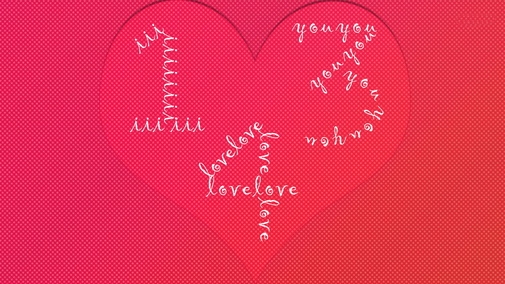 iii
iiiiiiiii
iii iii
youyou
youyou
you
you
you
lovelove
love
lovelove
love